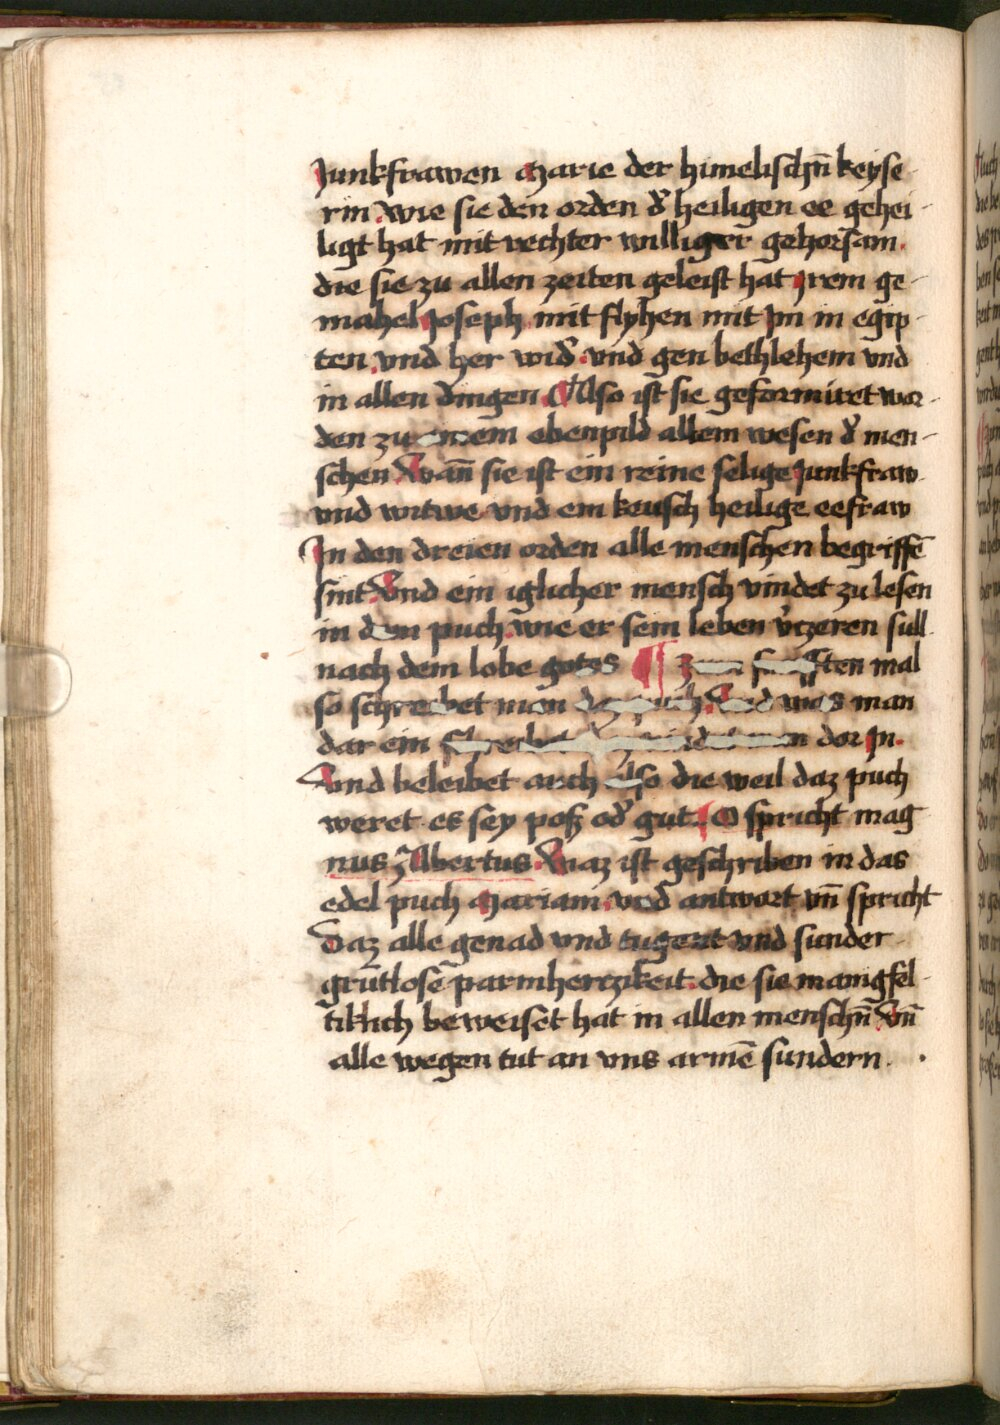 Junkfrawen Marie der himelischn̄ keyse
rin Wie sie den orden d̾ heiligen ee gehei
ligt hat mit rechter williger gehorsam.
die sie zu allen zeiten geleist hat Jrem ge
mahel Joseph mit flyhen mit Jm in egip
ten. vnd her wid̾. vnd gen bethlehem vnd
in allen dingen Also ist sie geformiret wor
den zu ebenpild allem wesen d̾ men
schen Wan̄ sie ist ein reine selige Junkfraw
vnd witwe vnd ein keusch heilige eefraw
Jn den dreien orden alle menschen begriffē
sint. Vnd ein iglicher mensch vindet zu lesen
in dem puch. wie er sein leben v̾czeren sull
nach dem lobe gotes ¶ Zum funfften mal
so schreibet man Vnd was man
dar ein dor Jn.
Vnd beleibet auch also die weil daz puch
weret es sey poß od̾ gut. O spricht mag
nus Albertus. Waz ist geschriben in das
edel puch Mariam. vnd antwort vn̄ spricht
Daz alle genad vnd tugent vnd sunder
grūtlosē parmherczikeit. die sie manigfel
tiklich beweiset hat in allen menschn̄ Vn̄
alle wegen tut an vns armē sundern.